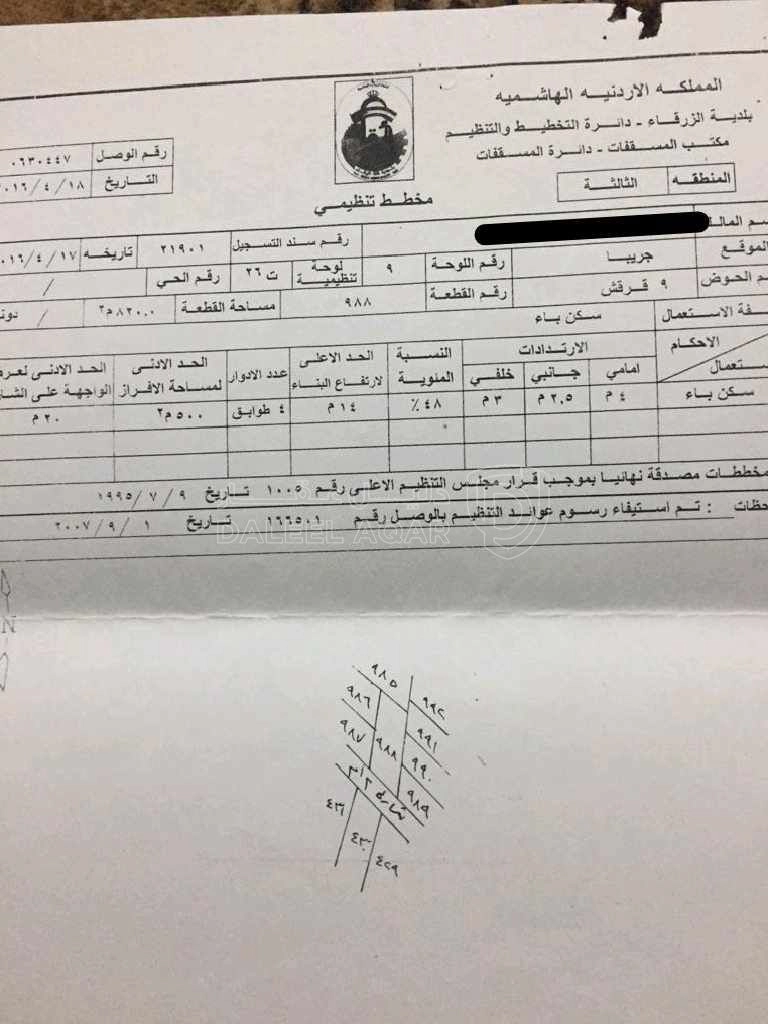 المملكه الاردنيه الهاشميه
بلدية الزرقاء - دائرة التخطيط والتنظيم
مكتب المسقفات - دائرة المسقفات
المنطقه الثالثة
رقم الوصل ٠٦٣٠٤٤٧
التاريخ ٠١٦/٤/١٨
مخطط تنظيمي
سم المالك
رقم سند التسجيل ٢١٩٠١ تاريخه ٠١٦/٤/١٧
الموقع جريبا رقم اللوحة ٩ لوحة تنظيمية ت ٢٦ رقم الحي /
م الحوض ٩ قرقش رقم القطعة ٩٨٨ مساحة القطعة ٨٢٠.٠ م٢ / دونم
فة الاستعمال سكن باء
الاحكام
ستعمال
الارتدادات
امامي جانبي خلفي
النسبة المئوية
الحد الاعلى لارتفاع البناء
عدد الادوار
الحد الادنى لمساحة الافراز
الحد الادنى لعرض الواجهة على الشار
سكن باء ٤ م ٢,٥ م ٣ م ٤٨ ٪ ١٤ م ٤ طوابق ٥٠٠ م٢ ٢٠ م
مخططات مصدقة نهائيا بموجب قرار مجلس التنظيم الاعلى رقم ١٠٠٥ تاريخ ٩ / ٧ / ١٩٩٥
حظات : تم استيفاء رسوم عوائد التنظيم بالوصل رقم ١٦٦٥٠١ تاريخ ١ / ٩ / ٢٠٠٧
DALEEL AQAR
N
٩٨٥
٩٩٢
٩٨٦
٩٩١
٩٨٧
٩٨٨
٩٩٠
٩٨٩
شارع ١٢م
٤٣١
٤٣٠
٤٢٩